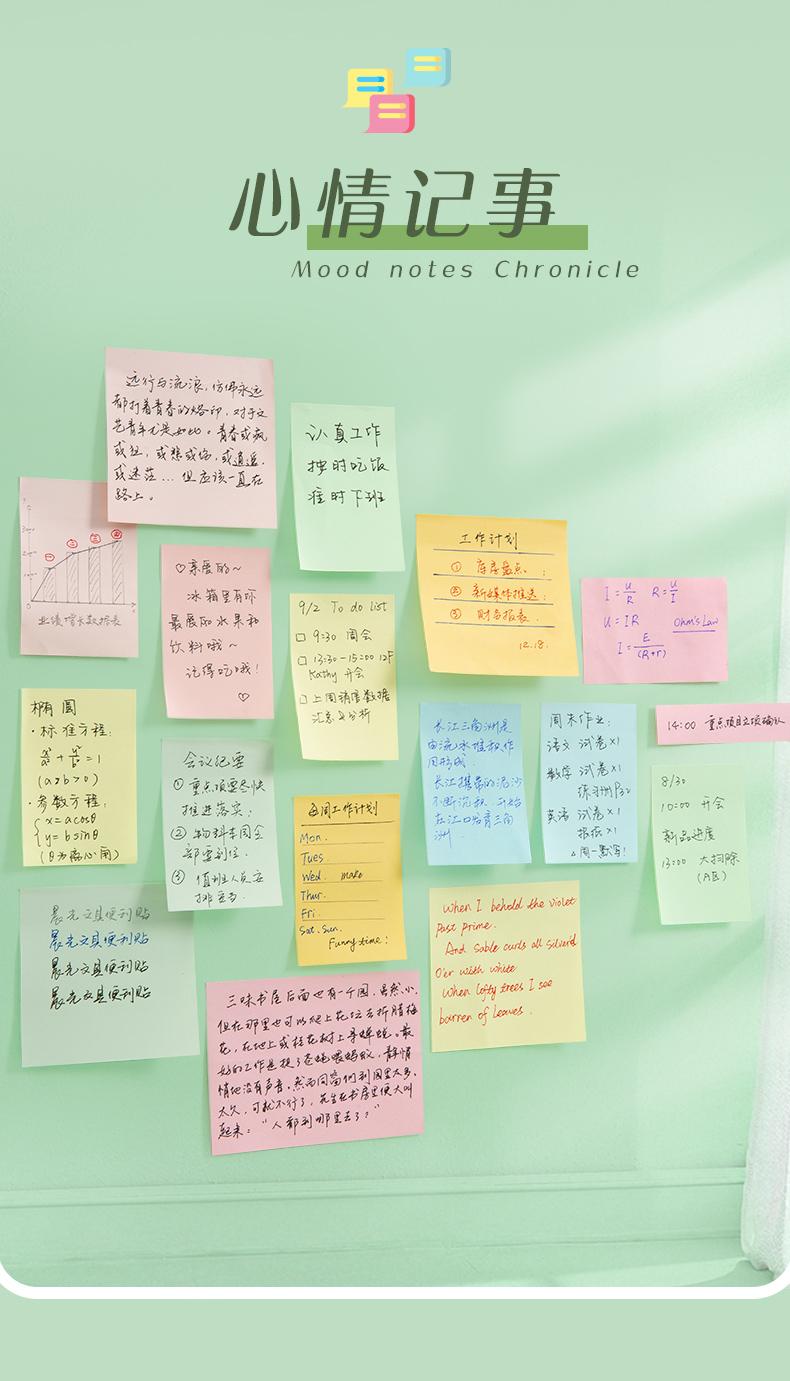 心情记事
Mood notes Chronicle
远行与流浪，仿佛永远
都打着青春的烙印，对于文
艺青年尤是如此。青春或疯
或狂，或悲或伤，或逍遥，
或迷茫...但应该一直在
路上。
认真工作
按时吃饭
准时下班
业绩增长数据表
♡亲爱的~
冰箱里有你
最爱的水果和
饮料哦~
记得吃哦!
♡
9/2 To do list
□ 9:30 周会
□ 13:30-15:00 12F
Kathy 开会
□ 上周销售数据
汇总与分析
工作计划
① 库房盘点.
② 新媒体推送
③ 财务报表.
12.18.
I = U/R R = U/I
U = IR Ohm's Law
I = E/(R+r)
椭圆
·标准方程:
x²/a² + y²/b² = 1
(a>b>0)
·参数方程:
{x=acosθ
{y=bsinθ
(θ为离心角)
会议纪要
① 重点项要尽快
推进落实;
② 物料本周全
部要到位.
③ 值班人员安
排妥当.
每周工作计划
Mon.
Tues
Wed. make
Thur.
Fri.
Sat. Sun.
Funny time:
长江三角洲是
由流水堆积作
用形成.
长江携带的泥沙
不断沉积.开始
在江口培育三角
洲.
周末作业:
语文 试卷×1
数学 试卷×1
练习册P32
英语 试卷×1
报纸×1
△周一默写!
14:00 重点项目立项确认
8/30
10:00 开会
新品进度
13:00 大扫除
(A区)
晨光文具便利贴
晨光文具便利贴
晨光文具便利贴
晨光文具便利贴
When I behold the violet
past prime.
And sable curls all silver'd
O'er with white
When lofty trees I see
barren of leaves.
三味书屋后面也有一个园，虽然小.
但在那里也可以爬上花坛去折腊梅
花，在地上或桂花树上寻蝉蜕。最
好的工作是捉了苍蝇喂蚂蚁，静悄
悄地没有声音。然而同窗们到园里太多、
太久，可就不行了，先生在书房里便大叫
起来："人都到哪里去了?"